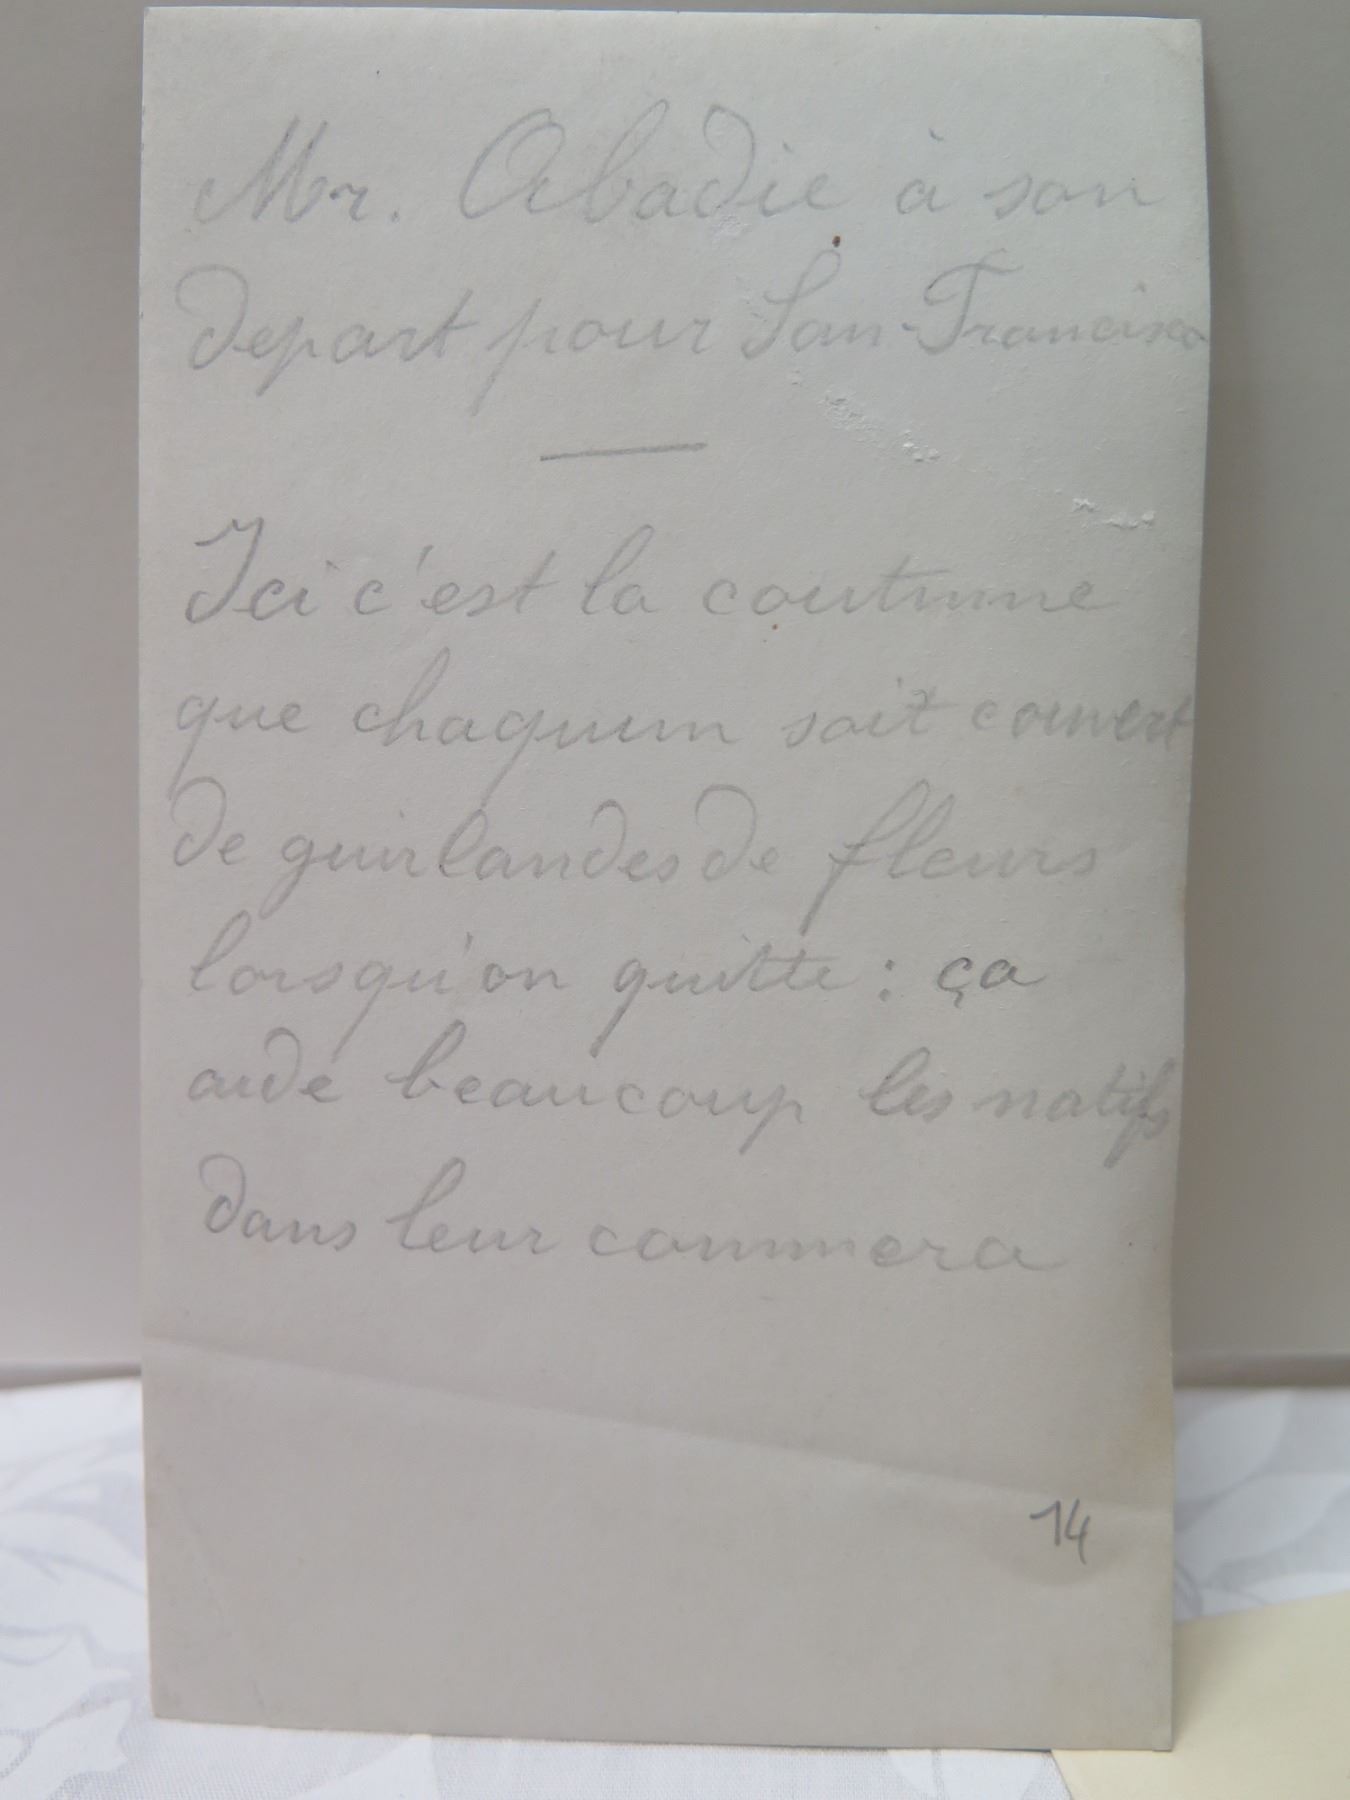 Mr. Abadie à son
depart pour San-Francisco
Ici c'est la coutume
que chaquun soit couvert
de guirlandes de fleurs
lorsqu'on quitte : ça
aide beaucoup les natifs
dans leur commerce
14